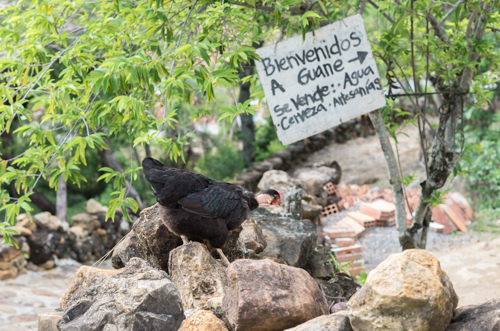 Bienvenidos
A Guane →
Se Vende: Agua
Cerveza. Artesanias